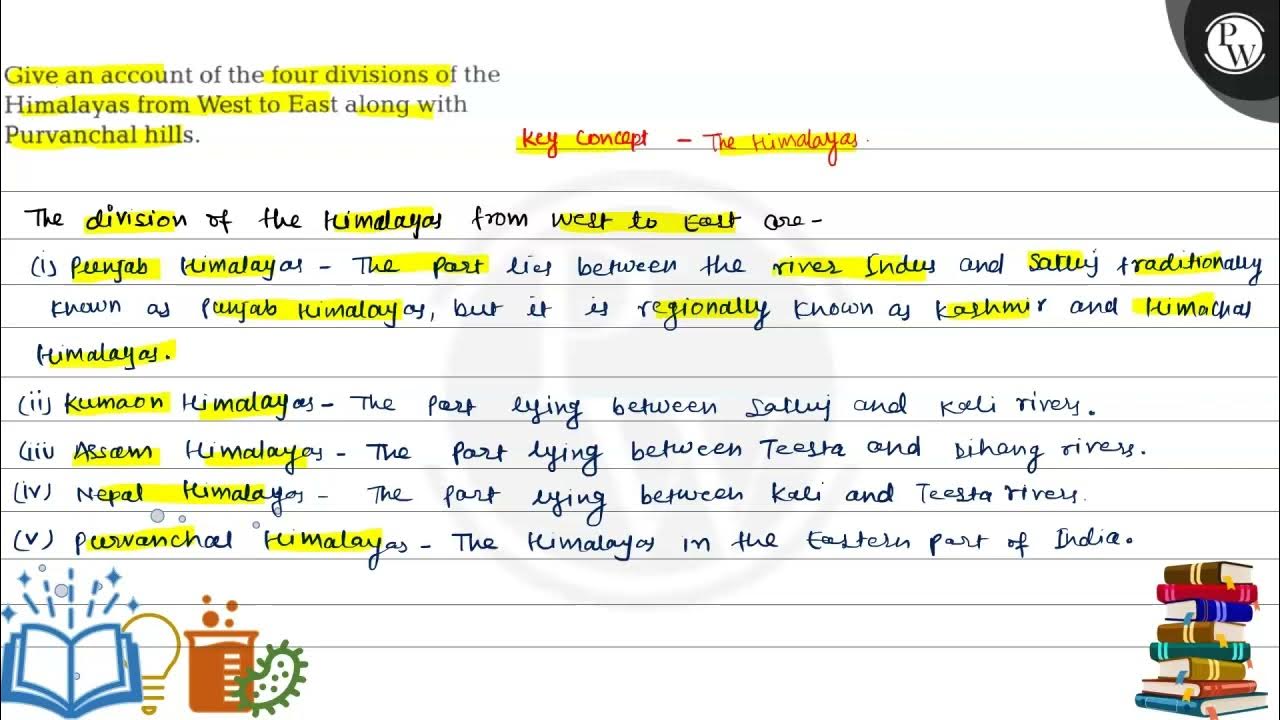 PW
Give an account of the four divisions of the
Himalayas from West to East along with
Purvanchal hills.
Key Concept - The Himalayas.
The division of the Himalayas from West to East are-
(i) Punjab Himalayas - The Part lies between the river Indus and Satluj traditionally
known as Punjab Himalayas, but it is regionally known as Kashmir and Himachal
Himalayas.
(ii) Kumaon Himalayas - The Part lying between Satluj and Kali rivers.
(iii Assam Himalayas - The Part lying between Teesta and Dihang rivers.
(iv) Nepal Himalayas - The part lying between Kali and Teesta rivers.
(v) Purvanchal Himalayas - The Himalayas in the Eastern part of India.